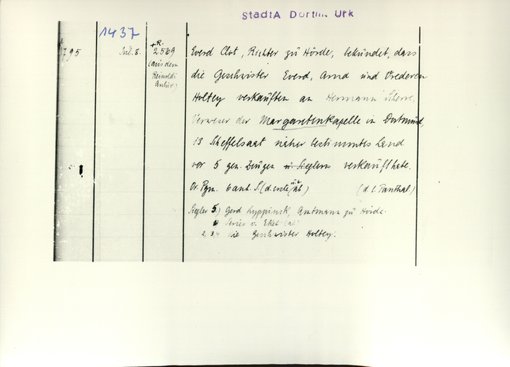 StadtA Dortm. Urk
1437
795
Juli 8.
+R.
2589
(aus dem
Reinoldi
Archiv)
Everd Clot, Richter zu Hörde, bekundet, dass
die Geschwister Everd, Arnd und Frederen
Holtey verkauften an Hermann
Verweser der Margaretenkapelle in Dortmund
13 Scheffelsaat näher bestimmtes Land
vor 5 gen. Zeugen u. Sieglern verkauft habe.
Or. Pgm. 6 anh. S.
Siegler 5) Gerd Luppinck, Amtmann zu Hörde
2. 3. 4. die Geschwister Holtey.